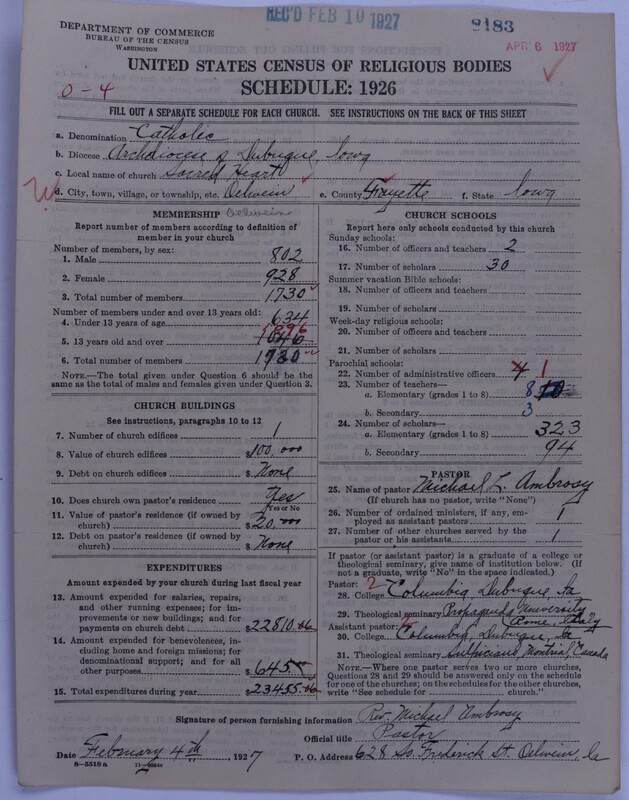 REC'D FEB 10 1927
9183
APR 6 1927
DEPARTMENT OF COMMERCE
BUREAU OF THE CENSUS
WASHINGTON
UNITED STATES CENSUS OF RELIGIOUS BODIES
SCHEDULE: 1926
0-4
FILL OUT A SEPARATE SCHEDULE FOR EACH CHURCH. SEE INSTRUCTIONS ON THE BACK OF THIS SHEET
a. Denomination Catholic
b. Diocese Archdiocese of Dubuque, Iowa
c. Local name of church Sacred Heart
d. City, town, village, or township, etc. Oelwein e. County Fayette f. State Iowa
MEMBERSHIP Oelwein
Report number of members according to definition of
member in your church
Number of members, by sex:
1. Male 802
2. Female 928
3. Total number of members 1730
Number of members under and over 13 years old:
4. Under 13 years of age 634
5. 13 years old and over 1096
6. Total number of members 1730
NOTE.—The total given under Question 6 should be
the same as the total of males and females given under Question 3.
CHURCH BUILDINGS
See instructions, paragraphs 10 to 12
7. Number of church edifices 1
8. Value of church edifices $100,000
9. Debt on church edifices $ None
10. Does church own pastor's residence Yes
Yes or No
11. Value of pastor's residence (if owned by
church) $20,000
12. Debt on pastor's residence (if owned by
church) $ None
EXPENDITURES
Amount expended by your church during last fiscal year
13. Amount expended for salaries, repairs,
and other running expenses; for im-
provements or new buildings; and for
payments on church debt $22810.06
14. Amount expended for benevolences, in-
cluding home and foreign missions; for
denominational support; and for all
other purposes $645
15. Total expenditures during year $23455.06
CHURCH SCHOOLS
Report here only schools conducted by this church
Sunday schools:
16. Number of officers and teachers 2
17. Number of scholars 30
Summer vacation Bible schools:
18. Number of officers and teachers
19. Number of scholars
Week-day religious schools:
20. Number of officers and teachers
21. Number of scholars
Parochial schools:
22. Number of administrative officers 4 1
23. Number of teachers—
a. Elementary (grades 1 to 8) 8 10
b. Secondary 3
24. Number of scholars—
a. Elementary (grades 1 to 8) 323
b. Secondary 94
PASTOR
25. Name of pastor Michael L. Ambrosy
(If church has no pastor, write "None")
26. Number of ordained ministers, if any, em-
ployed as assistant pastors 1
27. Number of other churches served by the
pastor or his assistants 1
If pastor (or assistant pastor) is a graduate of a college or
theological seminary, give name of institution below. (If
not a graduate, write "No" in the space indicated.)
Pastor: 2
28. College Columbia, Dubuque, Ia
29. Theological seminary Propaganda University
Rome, Italy
Assistant pastor:
30. College Columbia, Dubuque, Ia
31. Theological seminary Sulpicians, Montreal, Canada
NOTE.—Where one pastor serves two or more churches,
Questions 28 and 29 should be answered only on the schedule
for one of the churches; on the schedules for the other churches,
write "See schedule for church."
Signature of person furnishing information Rev. Michael Ambrosy
Official title Pastor
Date February 4th, 1927 P. O. Address 628 So. Frederick St. Oelwein, Ia
8-5518a